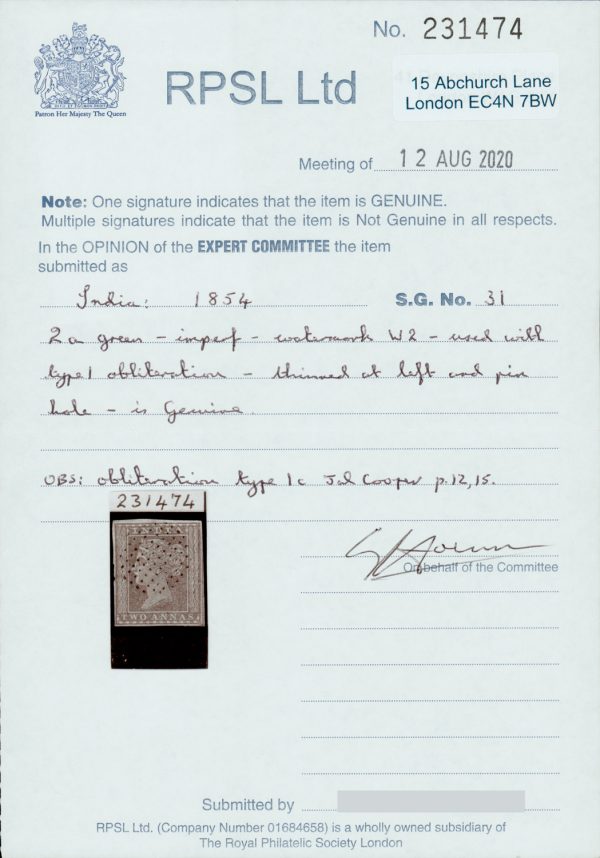 No. 231474
RPSL Ltd
15 Abchurch Lane
London EC4N 7BW
Patron Her Majesty The Queen
Meeting of 12 AUG 2020
Note: One signature indicates that the item is GENUINE.
Multiple signatures indicate that the item is Not Genuine in all respects.
In the OPINION of the EXPERT COMMITTEE the item
submitted as
India: 1854 S.G. No. 31
2a green – imperf – watermark W2 – used with
type 1 obliteration – thinned at left and pin
hole – is Genuine
OBS: obliteration type 1c Jal Cooper p.12,15.
231474
TWO ANNAS
On behalf of the Committee
Submitted by
RPSL Ltd. (Company Number 01684658) is a wholly owned subsidiary of
The Royal Philatelic Society London